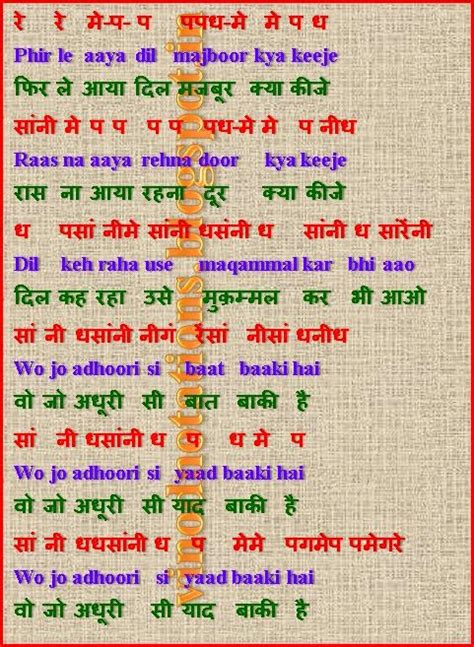 रे रे मे-प- प पपध-मे मे प ध
Phir le aaya dil majboor kya keeje
फिर ले आया दिल मजबूर क्या कीजे
सांनी मे प प प प पध-मे मे प नीध
Raas na aaya rehna door kya keeje
रास ना आया रहना दूर क्या कीजे
ध पसां नीमे सांनी धसंनी ध सांनी ध सांरेंनी
Dil keh raha use maqammal kar bhi aao
दिल कह रहा उसे मुक़म्मल कर भी आओ
सां नी धसांनी नीगं रेंसां नीसां धनीध
Wo jo adhoori si baat baaki hai
वो जो अधूरी सी बात बाकी है
सां नी धसांनी ध प ध मे प
Wo jo adhoori si yaad baaki hai
वो जो अधूरी सी याद बाकी है
सां नी धधसांनी ध प मेमे पगमेप पमेगरे
Wo jo adhoori si yaad baaki hai
वो जो अधूरी सी याद बाकी है
vinodnotations.blogspot.in